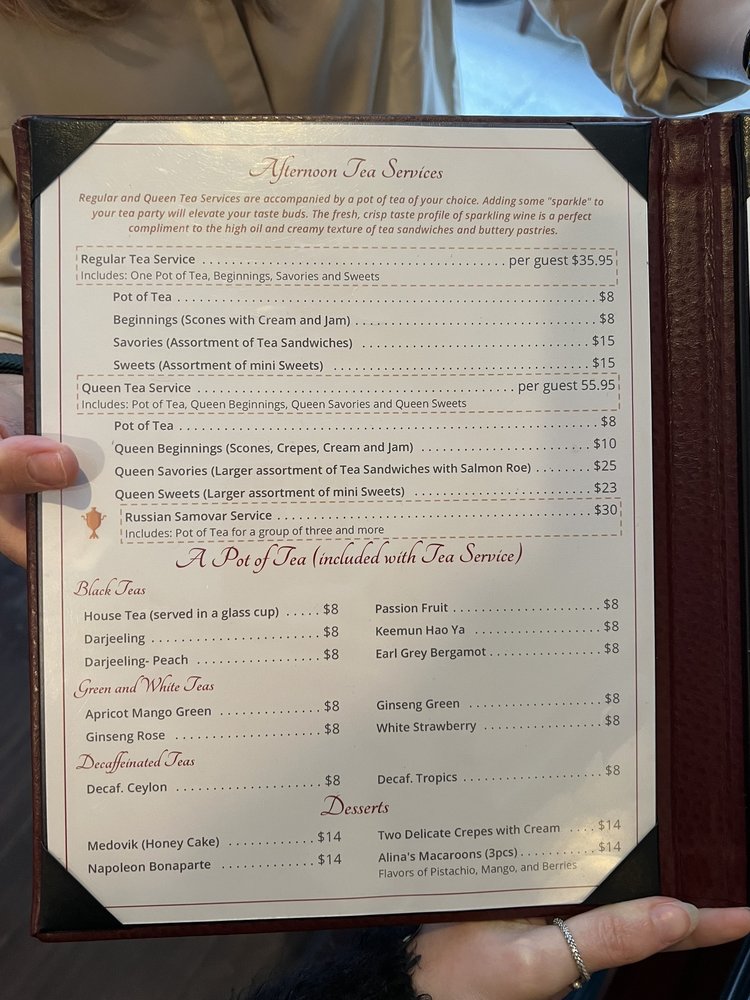 Afternoon Tea Services
Regular and Queen Tea Services are accompanied by a pot of tea of your choice. Adding some "sparkle" to
your tea party will elevate your taste buds. The fresh, crisp taste profile of sparkling wine is a perfect
compliment to the high oil and creamy texture of tea sandwiches and buttery pastries.
Regular Tea Service ........ per guest $35.95
Includes: One Pot of Tea, Beginnings, Savories and Sweets
Pot of Tea ........ $8
Beginnings (Scones with Cream and Jam) ........ $8
Savories (Assortment of Tea Sandwiches) ........ $15
Sweets (Assortment of mini Sweets) ........ $15
Queen Tea Service ........ per guest 55.95
Includes: Pot of Tea, Queen Beginnings, Queen Savories and Queen Sweets
Pot of Tea ........ $8
Queen Beginnings (Scones, Crepes, Cream and Jam) ........ $10
Queen Savories (Larger assortment of Tea Sandwiches with Salmon Roe) ........ $25
Queen Sweets (Larger assortment of mini Sweets) ........ $23
Russian Samovar Service ........ $30
Includes: Pot of Tea for a group of three and more
A Pot of Tea (included with Tea Service)
Black Teas
House Tea (served in a glass cup) ..... $8
Darjeeling ........ $8
Darjeeling- Peach ........ $8
Passion Fruit ........ $8
Keemun Hao Ya ........ $8
Earl Grey Bergamot ........ $8
Green and White Teas
Apricot Mango Green ........ $8
Ginseng Rose ........ $8
Ginseng Green ........ $8
White Strawberry ........ $8
Decaffeinated Teas
Decaf. Ceylon ........ $8
Decaf. Tropics ........ $8
Desserts
Medovik (Honey Cake) ........ $14
Napoleon Bonaparte ........ $14
Two Delicate Crepes with Cream .... $14
Alina's Macaroons (3pcs) ........ $14
Flavors of Pistachio, Mango, and Berries